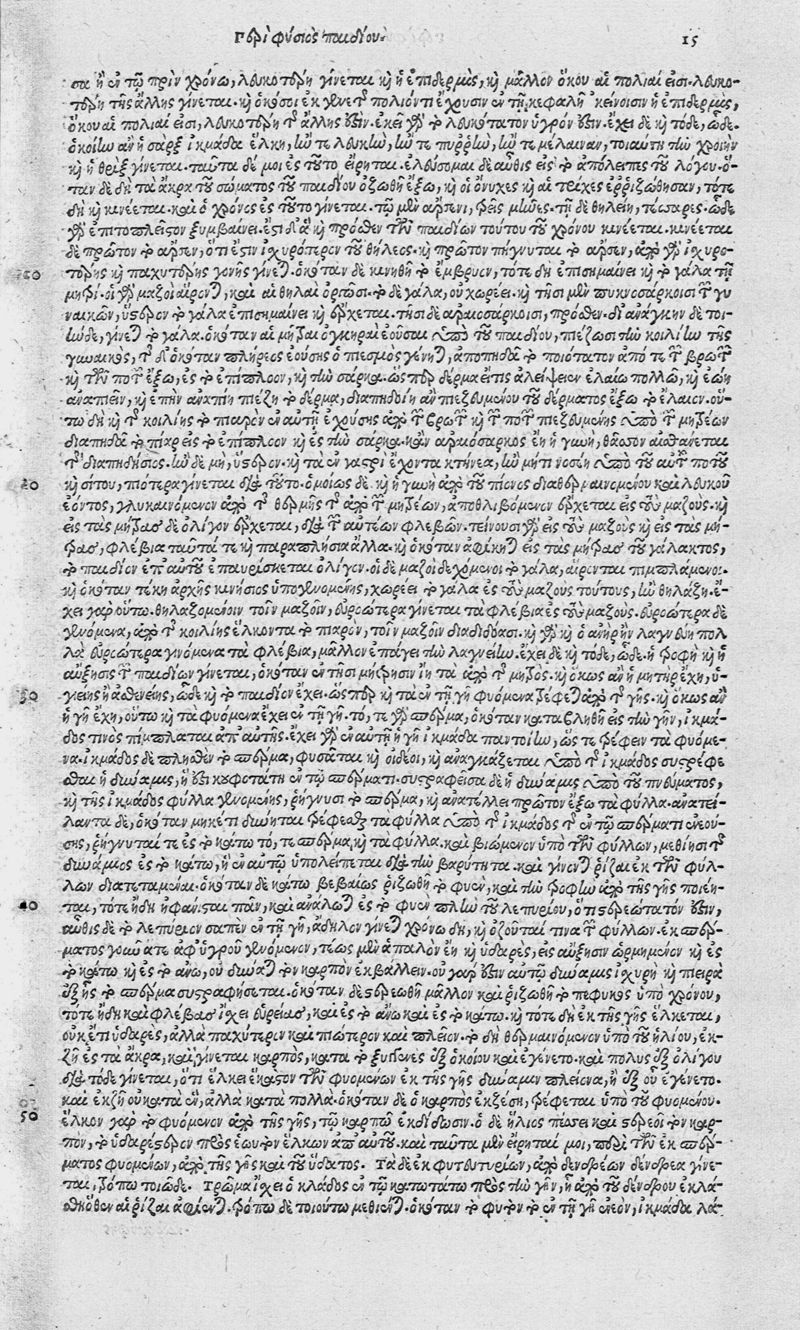 Περὶ φύσιος παιδίου. 15
σα ἢ ἐν τῷ πρὶν χρόνω, λευκοτέρη γίνεται καὶ ἡ ἐπιδερμὶς, καὶ μᾶλλον ὅκου αἱ πολιαί εἰσι. λευκο-
τέρη τῆς ἄλλης γίνεται. καὶ ὁκόσοι ἐκ γενετῆς πολιόν τι ἔχουσιν ἐν τῇ κεφαλῇ κείνοισιν ἡ ἐπιδερμὶς,
ὅκου αἱ πολιαί εἰσι, λευκοτέρη τῆς ἄλλης ἐστίν. ἐκεῖ γὰρ τὸ λευκότατον ὑγρόν ἐστιν. ἔχει δὲ καὶ τόδε, ὧδε.
ὁκοίην ἂν ἡ σὰρξ ἰκμάδα ἕλκη, ἤν τε λευκὴν, ἤν τε πυῤῥὴν, ἤν τε μέλαιναν, τοιαύτη τὴν χροιὴν
καὶ ἡ θρὶξ γίνεται. ταῦτα δέ μοι ἐς τοῦτο εἴρηται. ἐλεύσομαι δὲ αὖθις εἰς τὸ ἀπόλειπες τοῦ λόγου. ὅ-
ταν δὲ δὴ τὰ ἄκρα τοῦ σώματος τοῦ παιδίου ὀζωθῇ ἔξω, καὶ οἱ ὄνυχες καὶ αἱ τρίχες ἐῤῥιζώθησαν, τότε
δὴ καὶ κινέεται. καὶ ὁ χρόνος ἐς τοῦτο γίνεται. τῷ μὲν ἄρσενι, τρεῖς μῆνες. τῇ δὲ θηλείη, τέσσαρες. ὧδε
γὰρ ἐπιτοπλεῖστον ξυμβαίνει. ἔστι δ' ἃ καὶ πρόσθεν τῶν παιδίων τούτου τοῦ χρόνου κινέεται. κινέεται
δὲ πρῶτον τὸ ἄρσεν, ὅτι ἐστὶν ἰσχυρότερον τοῦ θήλεος. καὶ πρῶτον πήγνυται τὸ ἄρσεν, ἀπὸ γὰρ ἰσχυρο-
τέρης καὶ παχυτέρης γονῆς γίνεται. ὁκόταν δὲ κινηθῇ τὸ ἔμβρυον, τότε δὴ ἐπισημαίνει καὶ τὸ γάλα τῇ
μητρί. οἱ γὰρ μαζοὶ αἴρονται, καὶ αἱ θηλαὶ ὀργῶσι. τὸ δὲ γάλα, οὐ χωρέει. καὶ τῇσι μὲν πυκνοσάρκοισι τῶν γυ
ναικῶν, ὕστερον τὸ γάλα ἐπισημαίνει καὶ ἔρχεται. τῇσι δὲ ἀραιοσάρκοισι, πρόσθεν. δι' ἀνάγκην δὲ τοι-
ήνδε, γίνεται τὸ γάλα. ὁκόταν αἱ μῆτραι ὀγκηραὶ ἐοῦσαι ὑπὸ τοῦ παιδίου, πιέζωσι τὴν κοιλίην τῆς
γυναικὸς, τῆς δ' ὁκόταν πλήρεος ἐούσης ὁ πιεσμὸς γένηται, ἀποπηδᾶ τὸ πιότατον ἀπό τε τῶν βρωτῶν
καὶ τῶν ποτῶν ἔξω, ἐς τὸ ἐπίπλοον, καὶ τὴν σάρκα. ὥσπερ δέρμα εἴ τις ἀλείψειεν ἐλαίω πολλῷ, καὶ ἐώη
ἀναπιεῖν, καὶ ἐπὴν ἀναπίη πιέζη τὸ δέρμα, διαπηδοίη ἂν πιεζευμένου τοῦ δέρματος ἔξω τὸ ἔλαιον. οὕ-
τω δὴ καὶ τῆς κοιλίης τὸ πιαρὸν ἐν αὐτῇ ἐχούσης ἀπὸ τῶν βρωτῶν καὶ τῶν ποτῶν πιεζευμένης ὑπὸ τῶν μητρέων
διαπηδᾶ τὸ πῖαρ εἰς τὸ ἐπίπλοον καὶ ἐς τὴν σάρκα. κἂν ἀραιόσαρκος ἔη ἡ γυνὴ, θᾶσσον αἰσθάνεται
τῆς διαπηδήσιος. ἢν δὲ μὴ, ὕστερον. καὶ τὰ ἐν γαστρὶ ἔχοντα κτήνεα, ἢν μήτι νοσέη ὑπὸ τοῦ αὐτοῦ ποτοῦ
καὶ σίτου, πιότερα γίνεται διὰ τοῦτο. ὁμοίως δὲ καὶ ἡ γυνὴ ἀπὸ τοῦ πίονος διαθερμαινομένου καὶ λευκοῦ
ἐόντος, γλυκαινόμενον ἀπὸ τῆς θερμῆς τῆς ἀπὸ τῶν μητρέων, ἀποθλιβόμενον ἔρχεται εἰς τοὺς μαζούς. καὶ
εἰς τὰς μήτρας δὲ ὀλίγον ἔρχεται, διὰ τῶν αὐτέων φλεβῶν. τείνουσι γὰρ εἰς τοὺς μαζοὺς καὶ εἰς τὰς μή-
τρας, φλέβια ταῦτά τε καὶ παραπλήσια ἄλλα. καὶ ὁκόταν ἀφίκηται εἰς τὰς μήτρας τοῦ γάλακτος,
τὸ παιδίον ἐπ' αὐτοῦ ἐπαυρίσκεται ὀλίγον. οἱ δὲ μαζοὶ δεχόμενοι τὸ γάλα, αἴρονται πιμπλάμενοι.
καὶ ὁκόταν τέκη ἀρχῆς κινήσιος ὑπογενομένης, χωρέει τὸ γάλα ἐς τοὺς μαζοὺς τούτους, ἢν θηλάζη. ἔ-
χει γὰρ οὕτω. θηλαζομένοιν τοῖν μαζοῖν, εὐρωότερα γίνεται τὰ φλέβια ἐς τοὺς μαζούς. εὐρωότερα δὲ
γενόμενα, ἀπὸ τῆς κοιλίης ἕλκονται τὸ πιαρὸν, τοῖν μαζοῖν διαδιδόασι. καὶ γὰρ καὶ ὁ ἀνὴρ ἢν λαγνεύη πολ
λὰ εὐρωότερα γινόμενα τὰ φλέβια, μᾶλλον ἐπάγει τὴν λαγνείην. ἔχει δὲ καὶ τόδε, ὧδε. ἡ τροφὴ καὶ ἡ
αὔξησις τῶν παιδίων γίνεται, ὁκόταν ἐν τῇσι μήτρησιν ἴη τὰ ἀπὸ τῆς μητρός. καὶ ὅκως ἂν ἡ μήτηρ ἔχη, ὑ-
γιείης ἢ ἀσθενείης, ὧδε καὶ τὸ παιδίον ἔχει. ὥσπερ καὶ τὰ ἐν τῇ γῇ φυόμενα τρέφεται ἀπὸ τῆς γῆς. καὶ ὅκως ἂν
ἡ γῆ ἔχη, οὕτω καὶ τὰ φυόμενα ἔχει ἐν τῇ γῇ. τό, τε γὰρ σπέρμα, ὁκόταν καταβληθῇ εἰς τὴν γῆν, ἰκμά-
δος τινὸς πίμπλαται ἀπ' αὐτῆς. ἔχει γὰρ ἐν αὐτῇ ἡ γῆ ἰκμάδα παντοίην, ὥστε τρέφειν τὰ φυόμε-
να. ἰκμάδος δὲ πλησθὲν τὸ σπέρμα, φυσᾶται καὶ οἰδέει, καὶ ἀναγκάζεται ὑπὸ τῆς ἰκμάδος συστρέφε
σθαι ἡ δύναμις, ἥ ἐστι κουφοτάτη ἐν τῷ σπέρματι. συστραφεῖσα δὲ ἡ δύναμις ὑπὸ τοῦ πνεύματος,
καὶ τῆς ἰκμάδος φύλλα γενομένης, ῥήγνυσι τὸ σπέρμα, καὶ ἀνατέλλει πρῶτον ἔξω τὰ φύλλα. ἀνατεί-
λαντα δὲ, ὁκόταν μηκέτι δύνηται τρέφεσθαι τὰ φύλλα ὑπὸ τῆς ἰκμάδος τῆς ἐν τῷ σπέρματι ἐνεού-
σης, ῥήγνυταί τε ἐς τὸ κάτω τό, τε σπέρμα, καὶ τὰ φύλλα. καὶ βιώμενον ὑπὸ τῶν φύλλων, μεθίησι τῆς
δυνάμιος ἐς τὸ κάτω, ἣ ἐν αὐτῷ ὑπολείπεται διὰ βαρύτητα. καὶ γίνονται ῥίζαι ἐκ τῶν φύλ-
λων διατεταμέναι. ὁκόταν δὲ κάτω βεβαίως ῥιζωθῇ τὸ φυὲν, καὶ τὴν τροφὴν ἀπὸ τῆς γῆς ποιέη-
ται, τότε ἤδη ἠφάνισται πᾶν, καὶ ἀναλοῦται ἐς τὸ φυὲν πλὴν τοῦ λεπυρίου, ὅτι στερεώτατόν ἐστιν,
αὖθις δὲ τὸ λεπύριον σαπὲν ἐν τῇ γῇ, ἄδηλον γίνεται χρόνω δὴ, καὶ ὀζοῦταί τινα τῶν φύλλων. ἐκ σπέρ-
ματος γοῦν ἅτε ἀφ' ὑγροῦ γενόμενον, τέως μὲν ἁπαλὸν ἔη καὶ ὑδαρὲς, εἰς αὔξησιν ὡρμημένον καὶ ἐς
τὸ κάτω καὶ ἐς τὸ ἄνω, οὐ δύναται τὸν καρπὸν ἐκβάλλειν. οὐ γάρ ἐστιν αὐτῷ δύναμις ἰσχυρὴ καὶ πιερὰ
ἐξ ἧς τὸ σπέρμα συστραφήσεται. ὁκόταν δὲ στερεωθῇ μᾶλλον καὶ ῥιζωθῇ τὸ πεφυκὸς ὑπὸ χρόνου,
τότε ἤδη καὶ φλέβας ἴσχει εὐρείας, καὶ ἐς τὸ ἄνω καὶ ἐς τὸ κάτω. καὶ τότε δὴ ἐκ τῆς γῆς ἕλκεται,
οὐκ ἔτι ὑδαρὲς, ἀλλὰ παχύτερον καὶ πιώτερον καὶ πλεῖον. τὸ δὴ θερμαινόμενον ὑπὸ τοῦ ἡλίου, ἐκ-
ζῇ ἐς τὰ ἄκρα, καὶ γίνεται καρπὸς, κατὰ τὸ ξυγγενὲς ἐξ ὁκοίου καὶ ἐγένετο. καὶ πολὺς ἐξ ὀλίγου
διὰ τόδε γίνεται, ὅτι ἕλκει ἕκαστον τῶν φυομένων ἐκ τῆς γῆς δύναμιν πλείονα, ἢ ἐξ οὗ ἐγένετο.
καὶ ἐκζῇ οὐ κατὰ ἓν, ἀλλὰ κατὰ πολλά. ὁκόταν δὲ ὁ καρπὸς ἐκζέση, τρέφεται ὑπὸ τοῦ φυομένου.
ἕλκον γὰρ τὸ φυόμενον ἀπὸ τῆς γῆς, τῷ καρπῷ ἐκδίδωσιν. ὁ δὲ ἥλιος πέσσει καὶ στερεοῖ τὸν καρ-
πὸν, τὸ ὑδαρέστερον πρὸς ἑωυτὸν ἕλκων ἀπ' αὐτοῦ. καὶ ταῦτα μὲν εἴρηταί μοι, περὶ τῶν ἐκ σπέρ-
ματος φυομένων, ἀπὸ τῆς γῆς καὶ τοῦ ὕδατος. Τὰ δὲ ἐκ φυτευτηρίων, ἀπὸ δενδρέων δένδρεα γίνε-
ται, τρόπω τοιῷδε. Τρῶμα ἴσχει ὁ κλάδος ἐν τῷ κατωτάτω πρὸς τὴν γῆν, ᾗ ἀπὸ τοῦ δένδρου ἐκλά-
σθη ὅθεν αἱ ῥίζαι ἀφίενται. τρόπω δὲ τοιούτω μεθίενται. ὁκόταν τὸ φυτὸν τὸ ἐν τῇ γῇ ἐνεὸν, ἰκμάδα λά-
20
30
40
50